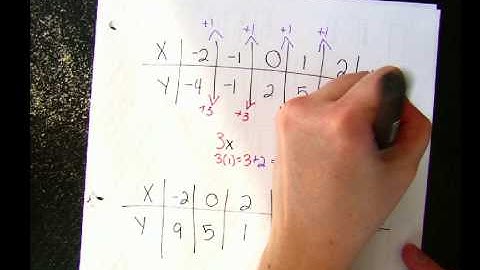 +1 +1 +1 +1
X -2 -1 0 1 2
Y -4 -1 2 5
+3 +3
3x
3(1)=3+2=
X -2 0 2
Y 9 5 1